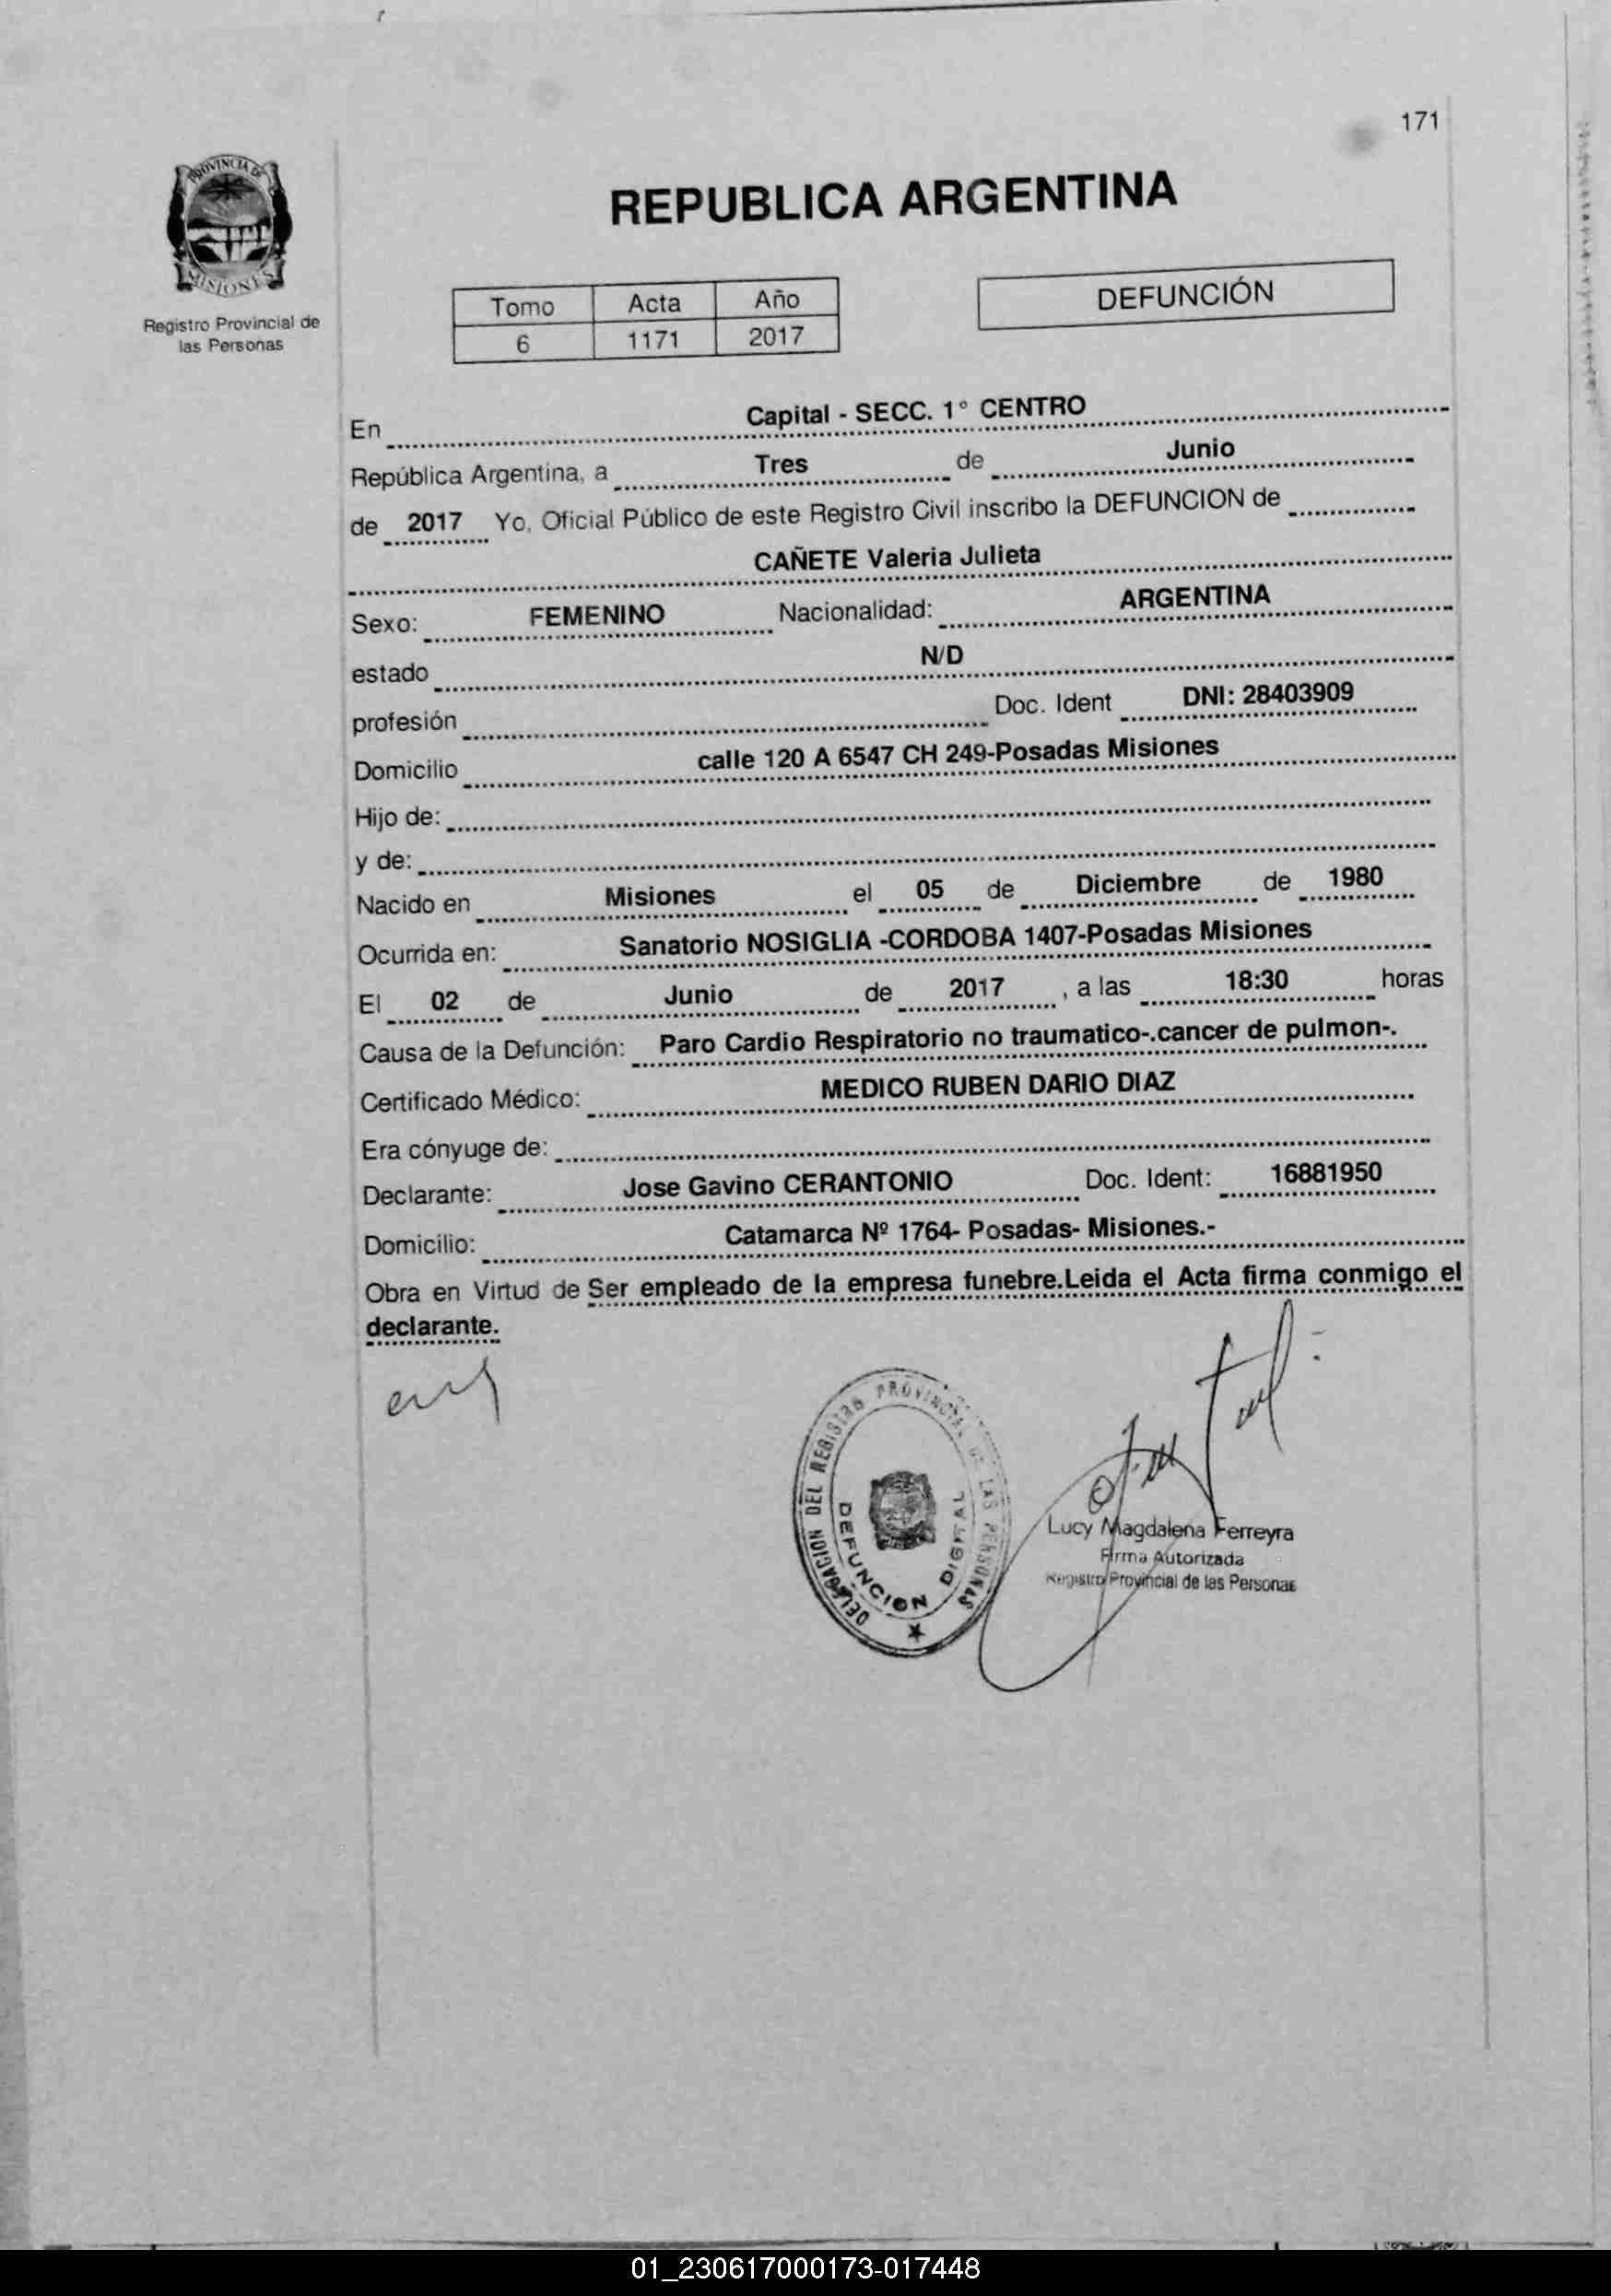 171
PROVINCIA DE
MISIONES
Registro Provincial de
las Personas
REPUBLICA ARGENTINA
Tomo Acta Año
6 1171 2017
DEFUNCIÓN
En Capital - SECC. 1° CENTRO
República Argentina, a Tres de Junio
de 2017 Yo, Oficial Público de este Registro Civil inscribo la DEFUNCION de
CAÑETE Valeria Julieta
Sexo: FEMENINO Nacionalidad: ARGENTINA
estado N/D
profesión Doc. Ident DNI: 28403909
Domicilio calle 120 A 6547 CH 249-Posadas Misiones
Hijo de:
y de:
Nacido en Misiones el 05 de Diciembre de 1980
Ocurrida en: Sanatorio NOSIGLIA -CORDOBA 1407-Posadas Misiones
El 02 de Junio de 2017, a las 18:30 horas
Causa de la Defunción: Paro Cardio Respiratorio no traumatico-.cancer de pulmon-.
Certificado Médico: MEDICO RUBEN DARIO DIAZ
Era cónyuge de:
Declarante: Jose Gavino CERANTONIO Doc. Ident: 16881950
Domicilio: Catamarca Nº 1764- Posadas- Misiones.-
Obra en Virtud de Ser empleado de la empresa funebre.Leida el Acta firma conmigo el
declarante.
DELEGACION DEL REGISTRO PROVINCIAL DE LAS PERSONAS
DEFUNCION DIGITAL
Lucy Magdalena Ferreyra
Firma Autorizada
Registro Provincial de las Personas
01_230617000173-017448